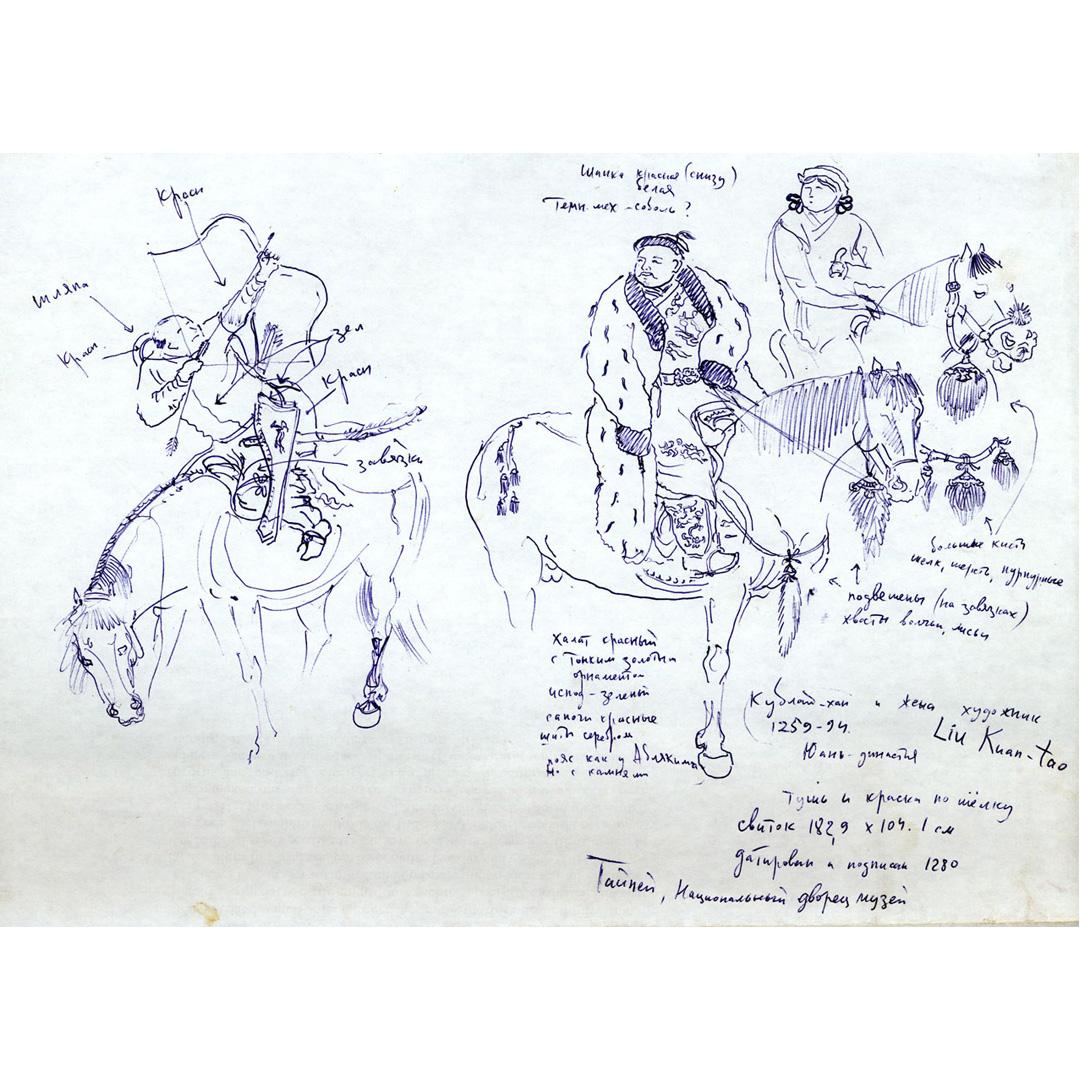 Красн
шляпа
Красн.
зел
Красн
завязки
Шапка красная (снизу)
белая
Темн. мех - соболь?
большие кисти
шелк, шерсть, пурпурные
подвешены (на завязках)
хвосты волчьи, лисьи
Халат красный
с тонким золотым
орнаментом
испод - зеленый
сапоги красные
шиты серебром
пояс как у
но с камнями
Кублай-хан и жена художник
1259-94.
Liu Kuan-tao
Юань-династия
Тушь и краска по шёлку
свиток 182,9 x 104.1 см
датирован и подписан 1280
Тайпей, Национальный дворец музей